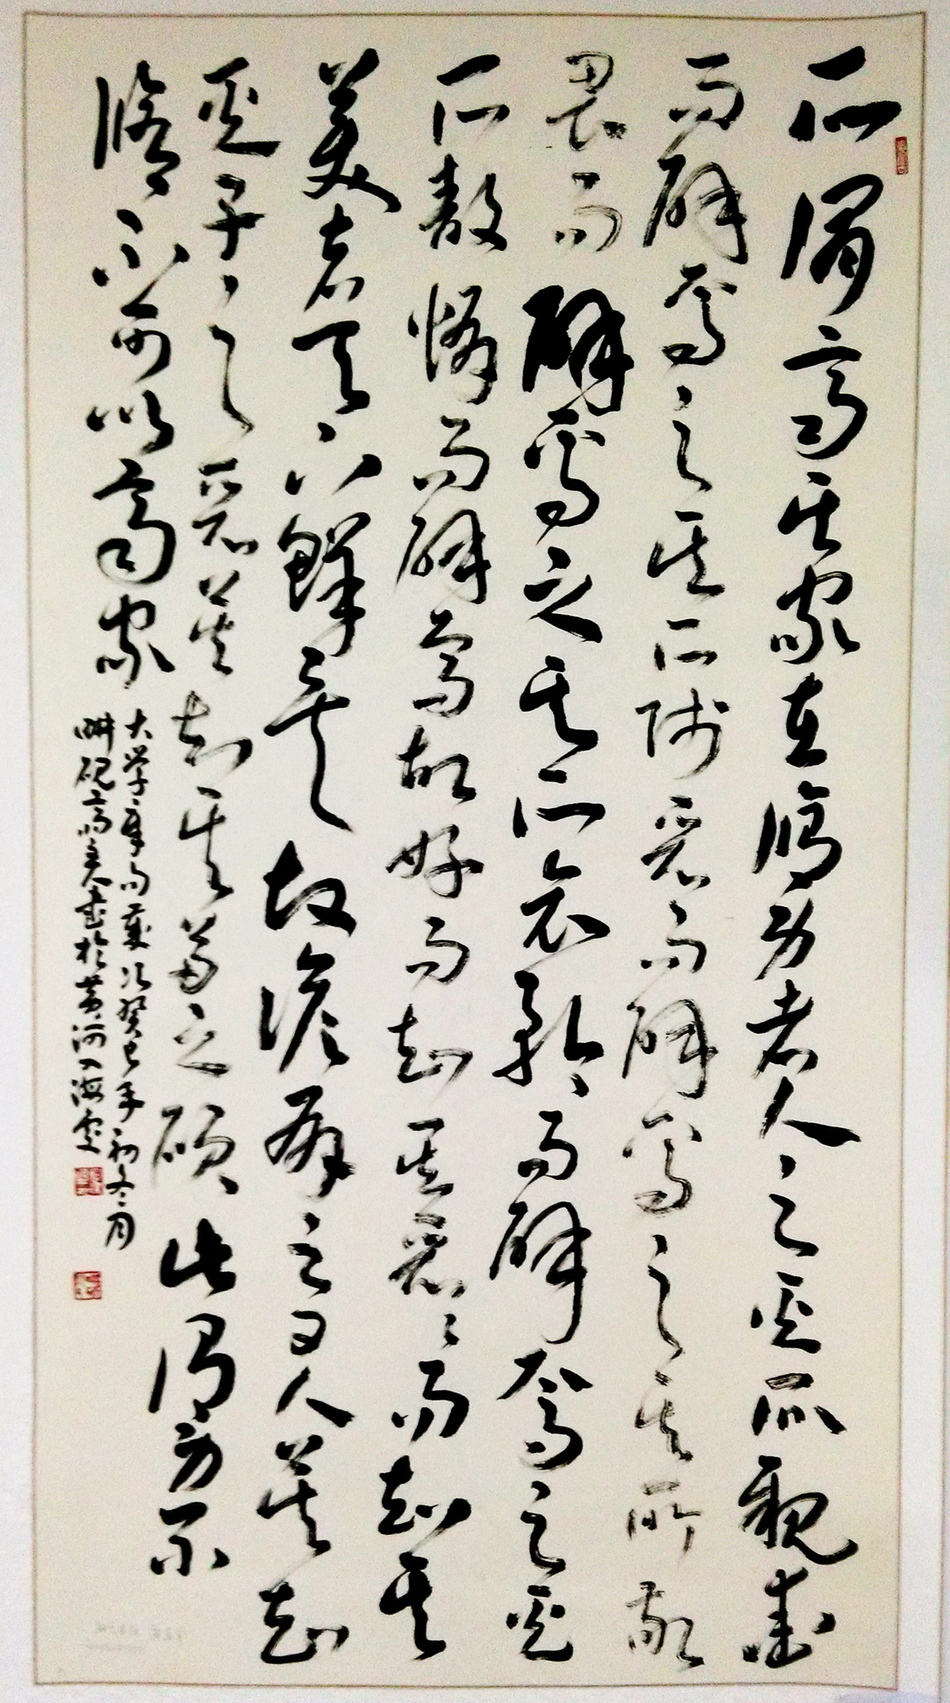 所謂齊其家在脩身者人之其所親愛
而辟焉之其所賤惡而辟焉之其所敬
畏而辟焉之其所哀矜而辟焉之其
所敖惰而辟焉故好而知其惡々而知其
美者天下鮮矣故諺有之曰人莫知
其子之惡莫知其苗之碩此謂身不
脩不可以齊家
大学章句歲次癸巳年初冬月
耕砚斋主書於黄河入海處